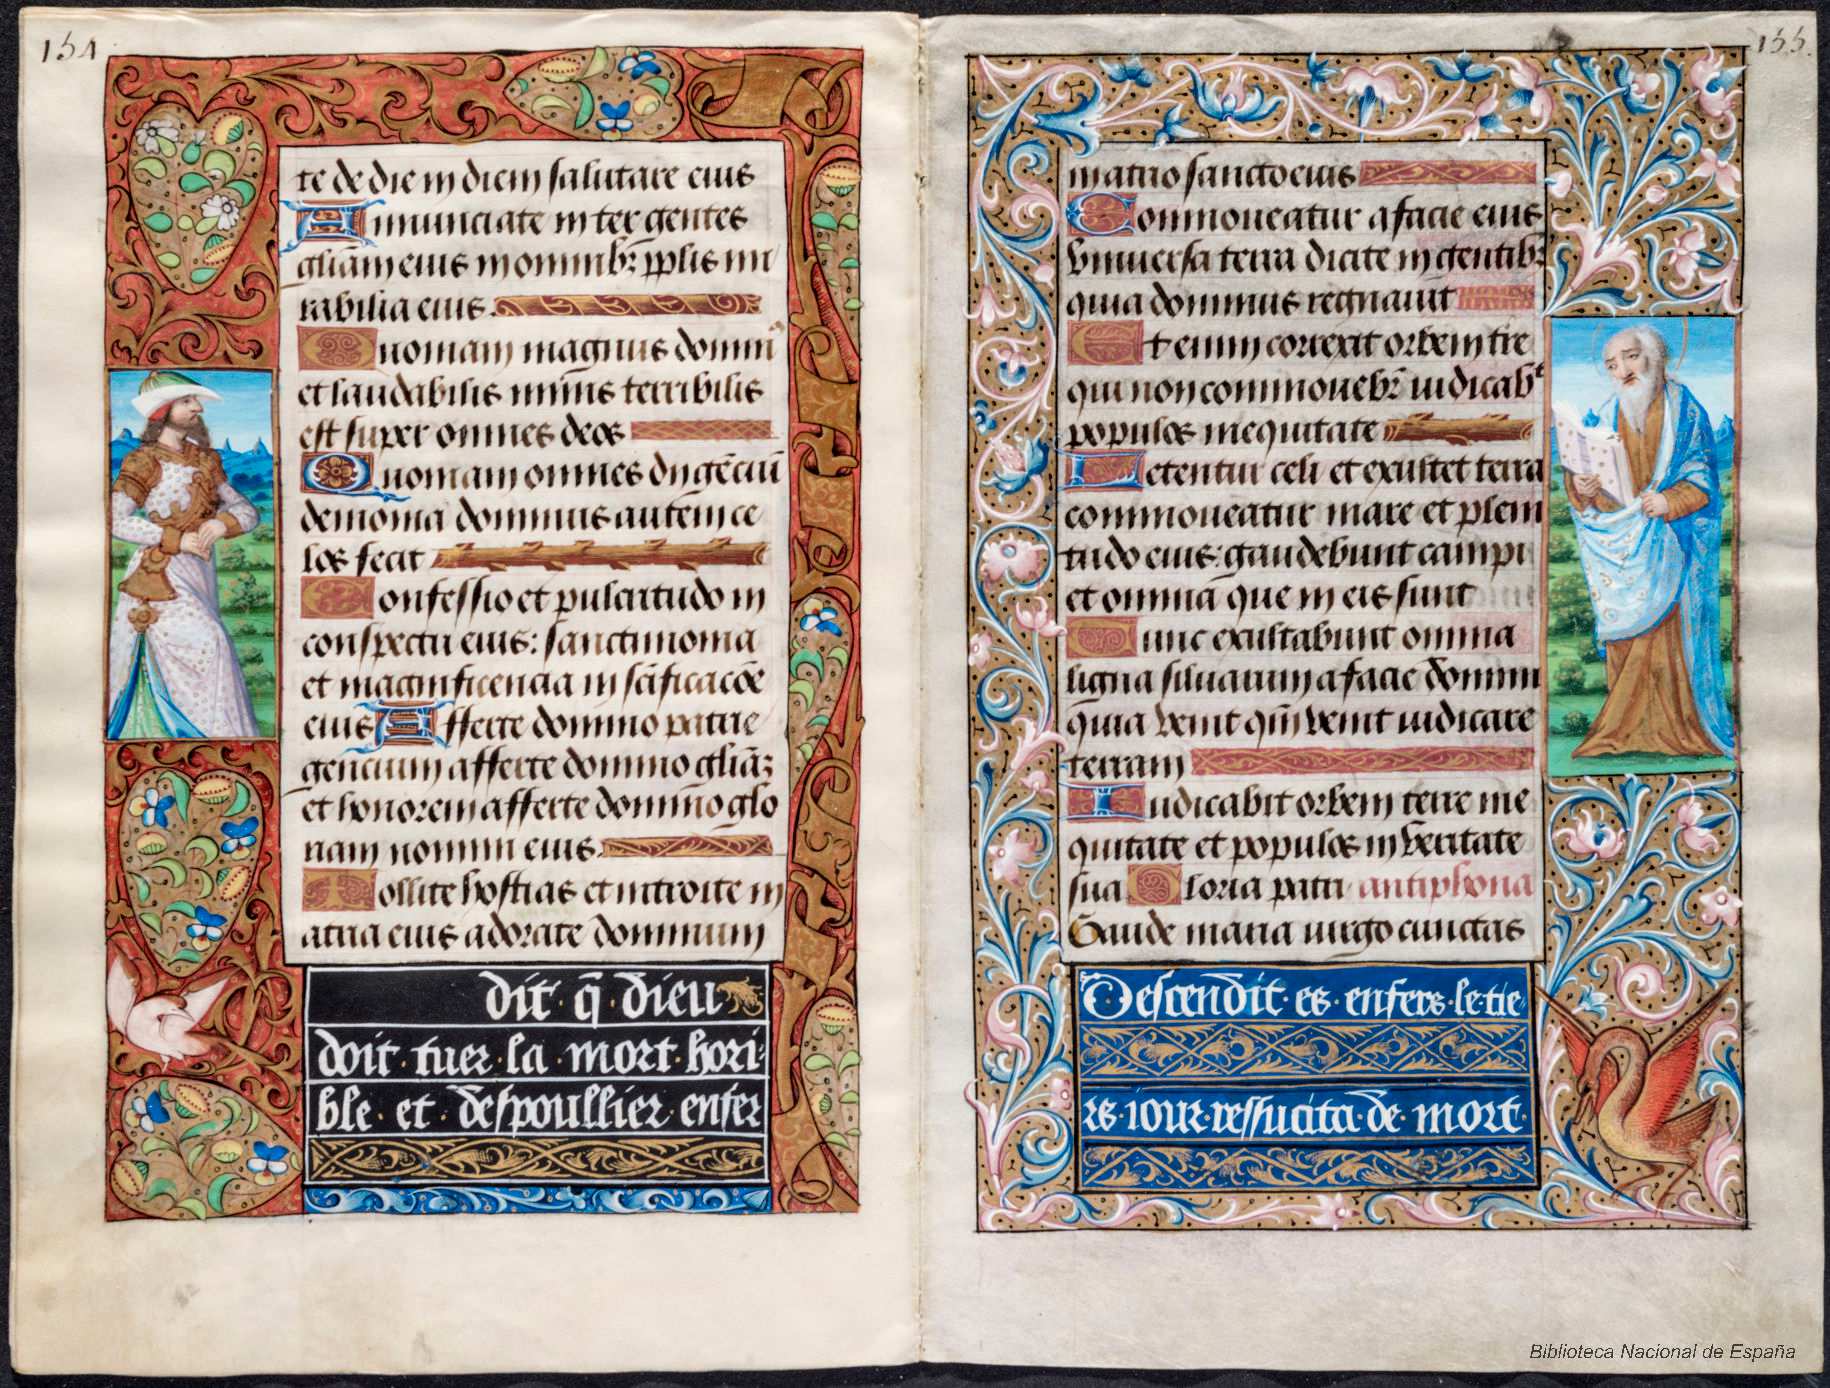 154
te de die in diem salutare eius
Annunciate inter gentes
gl̄iam eius in omnibꝫ pp̄lis mi
rabilia eius.
Quoniam magnus domin̄
et laudabilis nimis terribilis
est super omnes deos
Quoniam omnes dii gēciū
demonia dominus autem ce
los fecit
Confessio et pulcritudo in
conspectu eius: sanctimonia
et magnificencia in scīficacōe
eius Afferte domino patrie
gencium afferte domino gliāꝫ
et honorem afferte domino glo
riam nomini eius.
Tollite hostias et introite in
atria eius adorate dominum
dit · q̄ · dieu
doit · tuer · la · mort · hori
ble · et · despoullier · enfer
155.
in atrio sancto eius
Commoueatur a facie eius
vniuersa terra dicite in gentibꝫ
quia dominus regnauit
Et enim correxit orbem tre
qui non commouebr̄ iudicabᵗ
populos in equitate
Letentur celi et exultet terra
commoueatur mare et pleni
tudo eius: gaudebunt campi
et omnia que in eis sunt
Tunc exultabunt omnia
ligna siluarum a facie domini
quia venit qm̄ venit iudicare
terram
Iudicabit orbem terre in e
quitate et populos in veritate
sua Gloria patri antiphona
Gaude maria virgo cunctas
Descendit · es · enfers · le · tie
rs · iour · ressucita · de · mort ·
Biblioteca Nacional de España